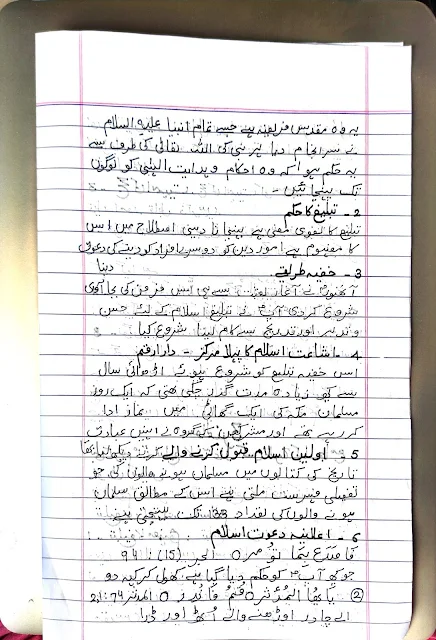 یہ وہ مقدس فریضہ ہے جسے تمام انبیا علیہ السلام
نے سرانجام دیا ہر نبی کو اللہ تعالی کی طرف سے
یہ حکم ہوا کہ وہ احکام وہدایت الہی کو لوگوں
تک پہنچائیں -
2 - تبلیغ کا حکم
تبلیغ کا لغوی معنی ہے پہنچانا دینی اصطلاح میں اس
کا مفہوم ہے امور دین کو دوسرے افراد کو دینے کی دعوتی
دینا
3 - خفیہ طریقے
آنحضورؐ نے آغاز سے ہی اس فرض کی بجا آوری
شروع کردی آپؐ نے تبلیغ اسلام کے لئے جس
وتدبیر اور تدریج سے کام لینا شروع کیا
4 - اشاعت اسلام کا پہلا مرکز - دارارقم
اس خفیہ تبلیغ کو شروع ہوئے اڑھائی سال
سے کچھ زیادہ مدت گذر چکی تھی کہ ایک روز
مسلمان مکہ کی ایک گھاٹی میں نماز ادا
کر رہے تھے اور مشرکین کے گروہ نے انہیں عبادت
5 - اولین اسلام قبول کرنے والے کرتے دیکھ لیا تھا
تاریخ کی کتابوں میں مسلمان ہونے والوں کی جو
تفصیلی فہرست ملتی ہے اس کے مطابق مسلمان
ہونے والوں کی تعداد 133 تک پہنچتی ہے
6 - اعلانیہ دعوت اسلام
فاصدع بما تؤمر ٥ الحجر (15) : 94
جو کچھ آپؐ کو حکم دیا گیا ہے کھول کر کہہ دو
② یا یھا المدثر ٥ قم فانذر ٥ المدثر 74 : 2،1
اے چادر اوڑھنے والے اُٹھ اور ڈرا